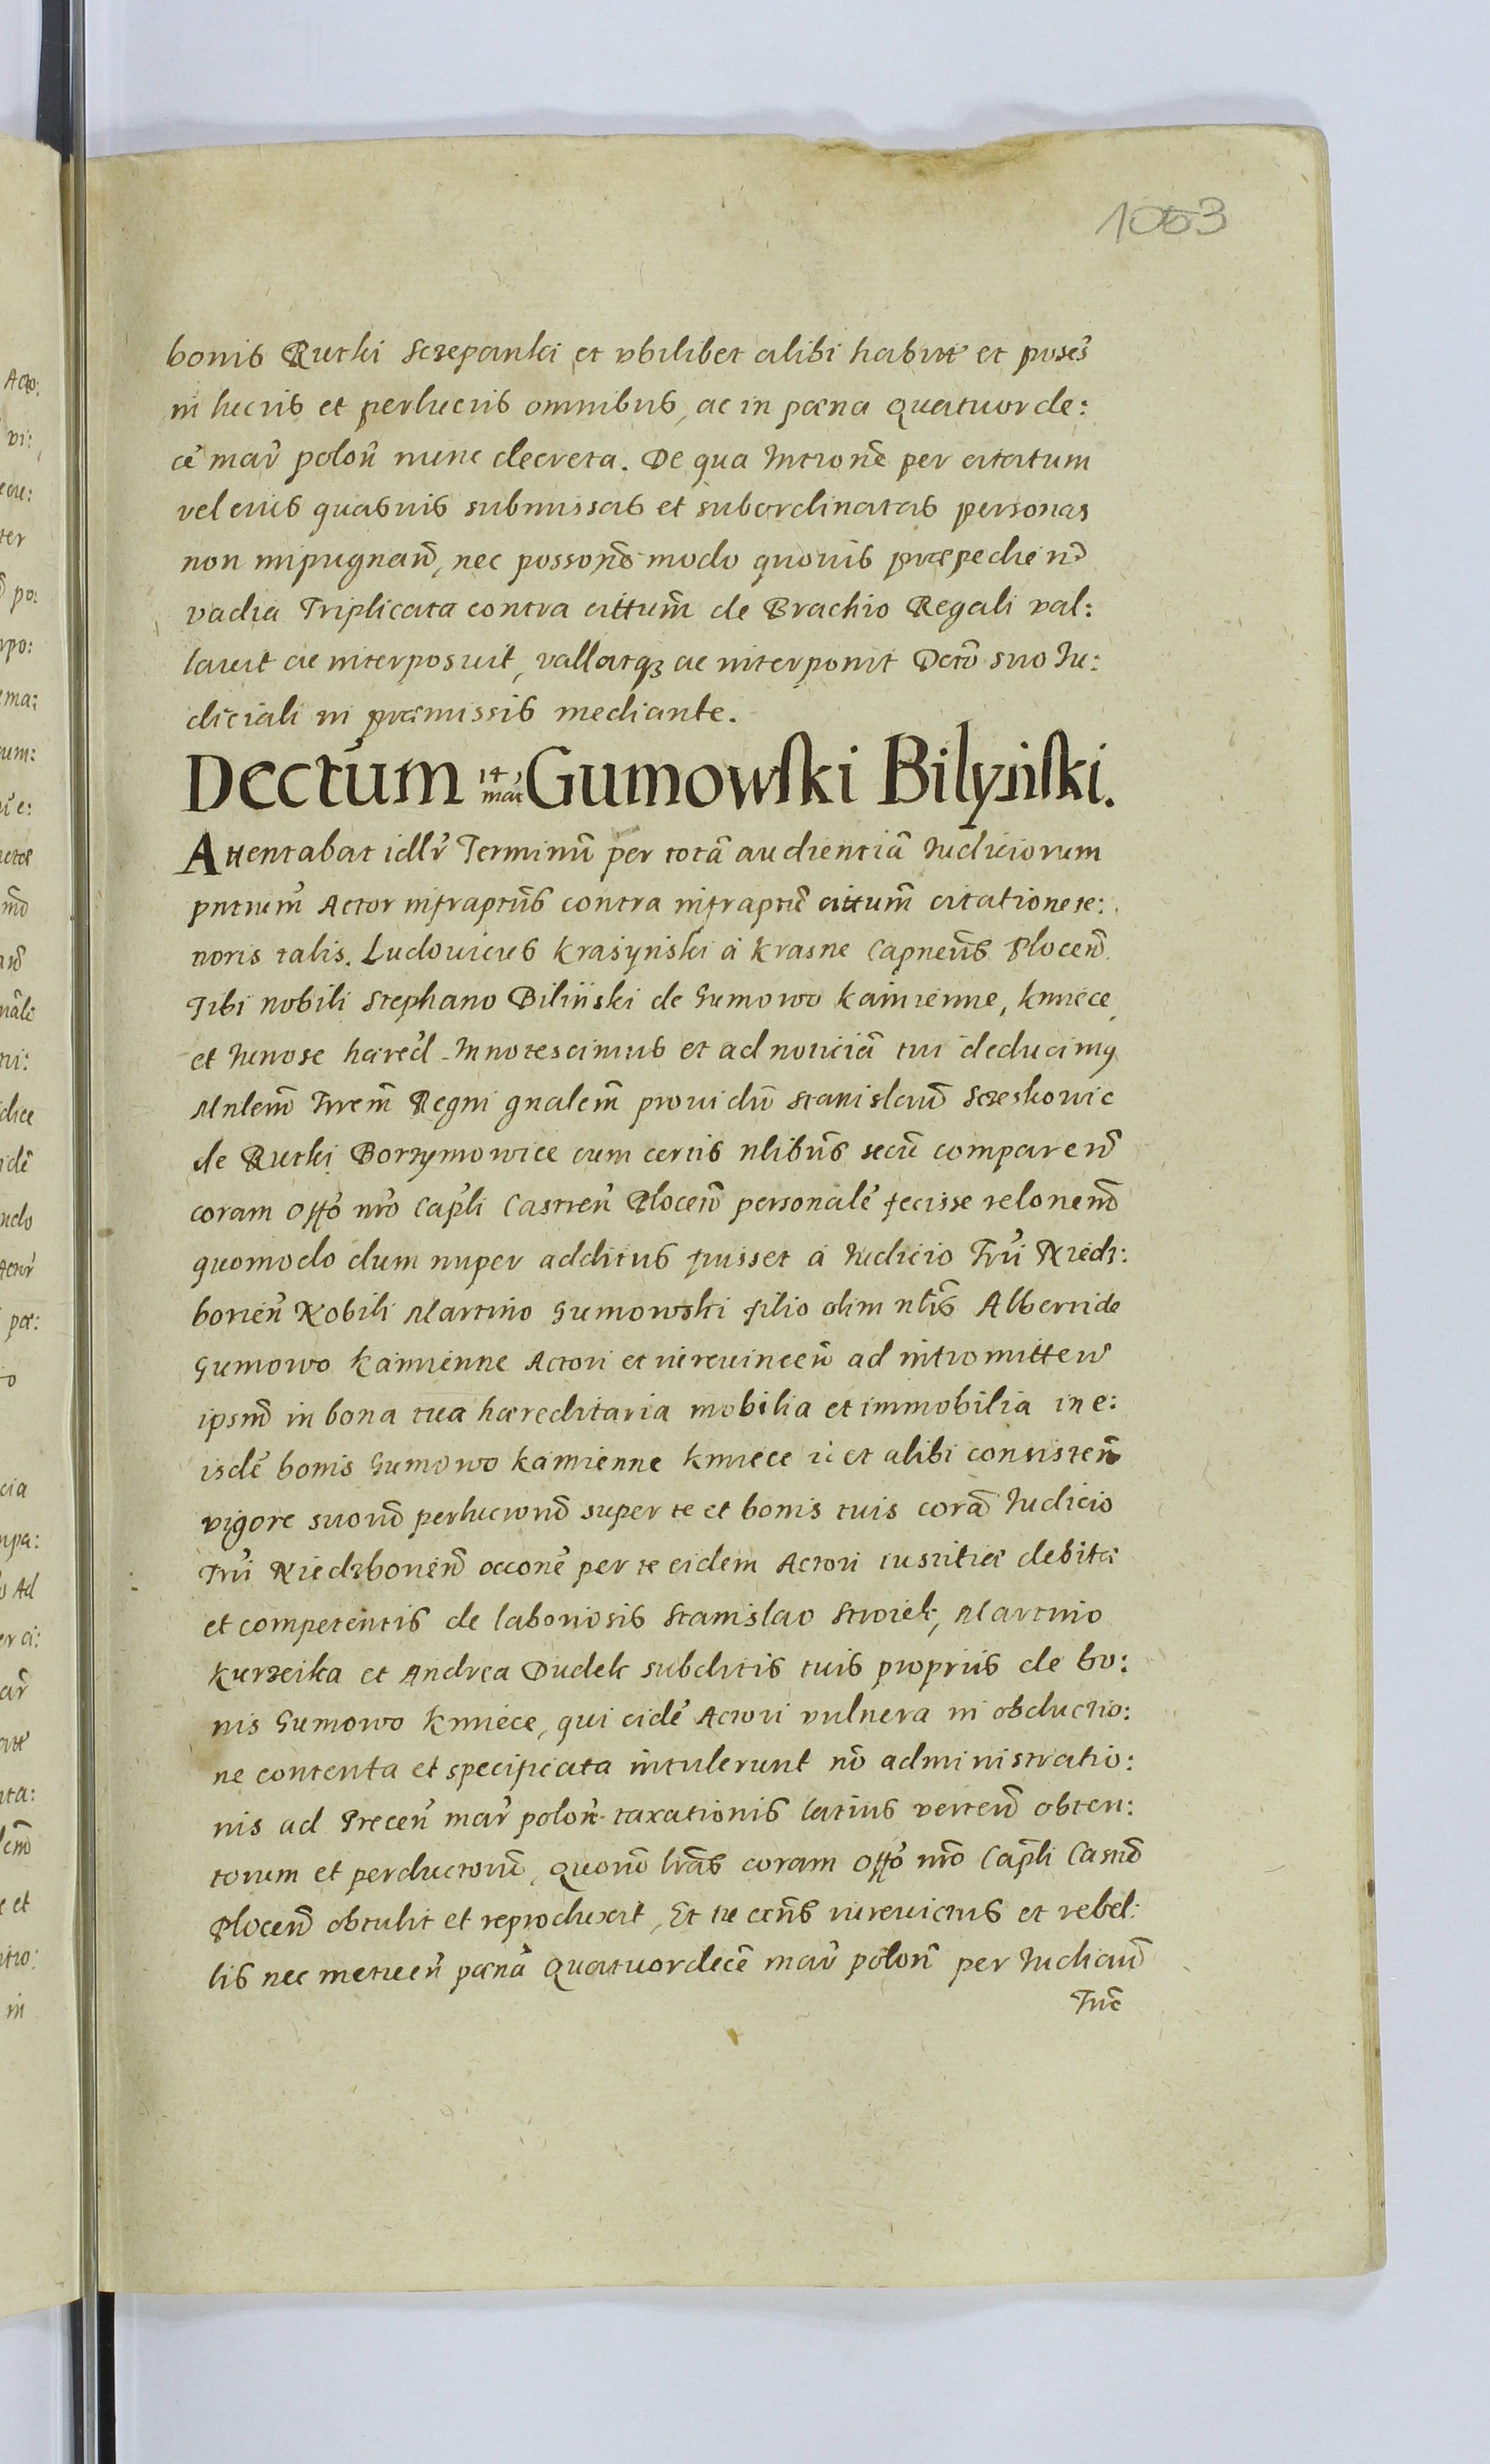 1063
bonis Rutki Sczepanki et vbilibet alibi habitˀ et posesˀ
in lucris et perlucris omnibus, ac in pœna Quatuorde:
cẽ marˀ polon̄ nunc decreta. De qua Intronẽ per citatum
vel eius quasuis submissas et subordinatas personas
non impugnan̄, nec possonẽ modo quouis præpedien̄
vadia Triplicata contra cittum̄ de Brachio Regali val:
lauit ac interposuit, vallatqꝫ ac interponit Dctõ suo Iu:
diciali in præmissis mediante.
Dectum 14 marˀ Gumowski Bilyński.
Attentabat idlrˀ Terminũ per totã audientiã Iudiciorum
pntium̄ Actor infraptũs contra infraptũ cittum̄ citatione te:
noris talis. Ludouicus Krasyński à Krasne Capneus̃ Plocen̄
Tibi nobili Stephano Biliński de Gumowo Kamienne, Kmiece
et Iunose hæred̄ Innotescimus et ad noticiã tui deducimꝯ
Mnlem̄ Trem̄ Regni gnalem̄ prouidũ Stanislaũ Sczeskowic
de Rutki Borzymowice cum certis nlibũs secũ comparen̄
coram Offõ nrõ Capl̃i Castren̄ Plocen̄ personalˀ fecisse relonem̄
quomodo dum nuper additus fuisset à Iudicio Trˀi Niedz:
borien̄ Nobili Martino Gumowski filio olim nlis̃ Alberti de
Gumowo Kamienne Actori et iureuincen̄ ad intromitten̄
ipsum̄ in bona tua hæreditaria mobilia et immobilia in e:
isdẽ bonis Gumowo Kamienne Kmiece ic et alibi consisten̄
vigore suorũ perlucrorũ super te et bonis tuis corã Iudicio
Trˀi Niedzborien̄ occonẽ per te eidem Actori iustitiæ debitæ
et competentis de laboriosis Stanislao Stroiek, Martino
Kurzeika et Andrea Dudek subditis tuis propriis de bo:
nis Gumowo Kmiece, qui eidẽ Actori vulnera in obductio:
ne contenta et specificata intulerunt nõ administratio:
nis ad Trecen̄ marˀ polon̄ taxationis latius verten̄ obten:
torum et perductorũ, Quorũ lrãs coram Offõ nrõ Capl̃i Castrẽ
Plocen̄ obtulit et reproduxit, Et tu ceñs iureuictus et rebel:
lis nec metuen̄ pœnã Quatuordecẽ marˀ polon̄ per Iudiciũ
Trˀi